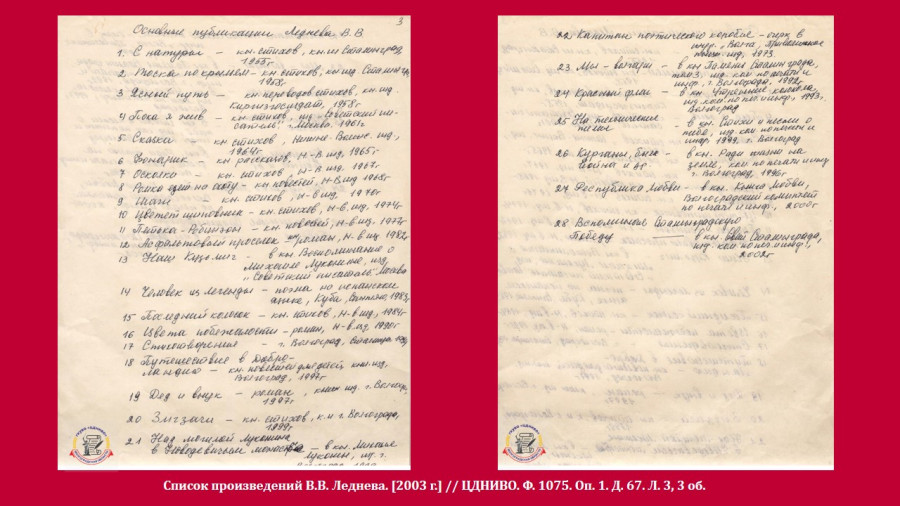 3
Основные публикации Леднева В.В
1. С натуры — кн. стихов, кн. из Сталинград,
1955г
2. Тоска по крыльям — кн стихов, кн изд Сталингр,
1958г
3 Ясный путь — кн. переводов стихов, кн. изд.
Киргизгосиздат, 1958г
4 Пока я жив — кн. стихов, изд "Советский пи-
сатель". Москва. 1961г
5 Сказка — кн стихов, Нижне-Волжс. изд.,
1964г
6 — кн рассказов, Н-В изд, 1965г
7 Осколко — кн. стихов, Н-В изд, 1967г
8 — кн. повестей, Н-В изд 1968г
9 — кн. стихов, Н-В изд, 1970г
10 Цветет шиповник — кн. стихов, Н-В. изд, 1974г
11 Пятика-Робинзон — кн. повестей, Н-В изд, 1977г
12 Асфальтовый проселок — роман, Н-В изд 1982г
13 Наш Кузьмич — в кн Воспоминание о
Михаиле Луконине, изд,
"Советский писатель" Москва
14 Человек из легенды — поэма на испанском
языке, Куба, 1983г
15 Последний колосок — кн. стихов, Н-В изд, 1984г
16 Цвета побежалости — роман, Н-В изд, 1990г
17 Стихотворения — г. Волгоград,
18 Путешествие в Добро-
ландию — кн. повестей для детей, кни. изд,
Волгоград, 1997г
19 Дед и внук — роман, книж изд. г. Волгогр,
1997г
20 Зигзаги — кн. стихов, к.и г. Волгограда,
1999г
21 Над могилой Луконина
в Новодевичьем монастыре — в кн. Михаил
Луконин, изд. г.
22 Капитан поэтического корабля — очерк в
жур. "Волга, Приволжское
изд, 1973
23 Мы — волгари — в кн Памяти Сталинграда,
том 3, изд. ком по печати и
инф, г Волгограда, 1992г
24 Красный флаг — в кн. Утренние колокола,
изд ком по печ и инф, 1993г,
Волгоград
25 На тракторные
— в кн. Стихи и песни о
тебе, изд. ком по печати и
инф 1999. г. Волгоград
26 Курганы, быль
война и др. — в кн. Ради жизни на
земле, ком по печати и инф
г. Волгоград, 1996г
27 Республика Любви — в кн. Книга Любви,
Волгоградский комитет
по печати и инф, 2000г
28 Вспоминая Сталинградскую
Победу — в кн. Сталинграда,
изд ком по печ и инф,
2002г
Список произведений В.В. Леднева. [2003 г.] // ЦДНИВО. Ф. 1075. Оп. 1. Д. 67. Л. 3, 3 об.